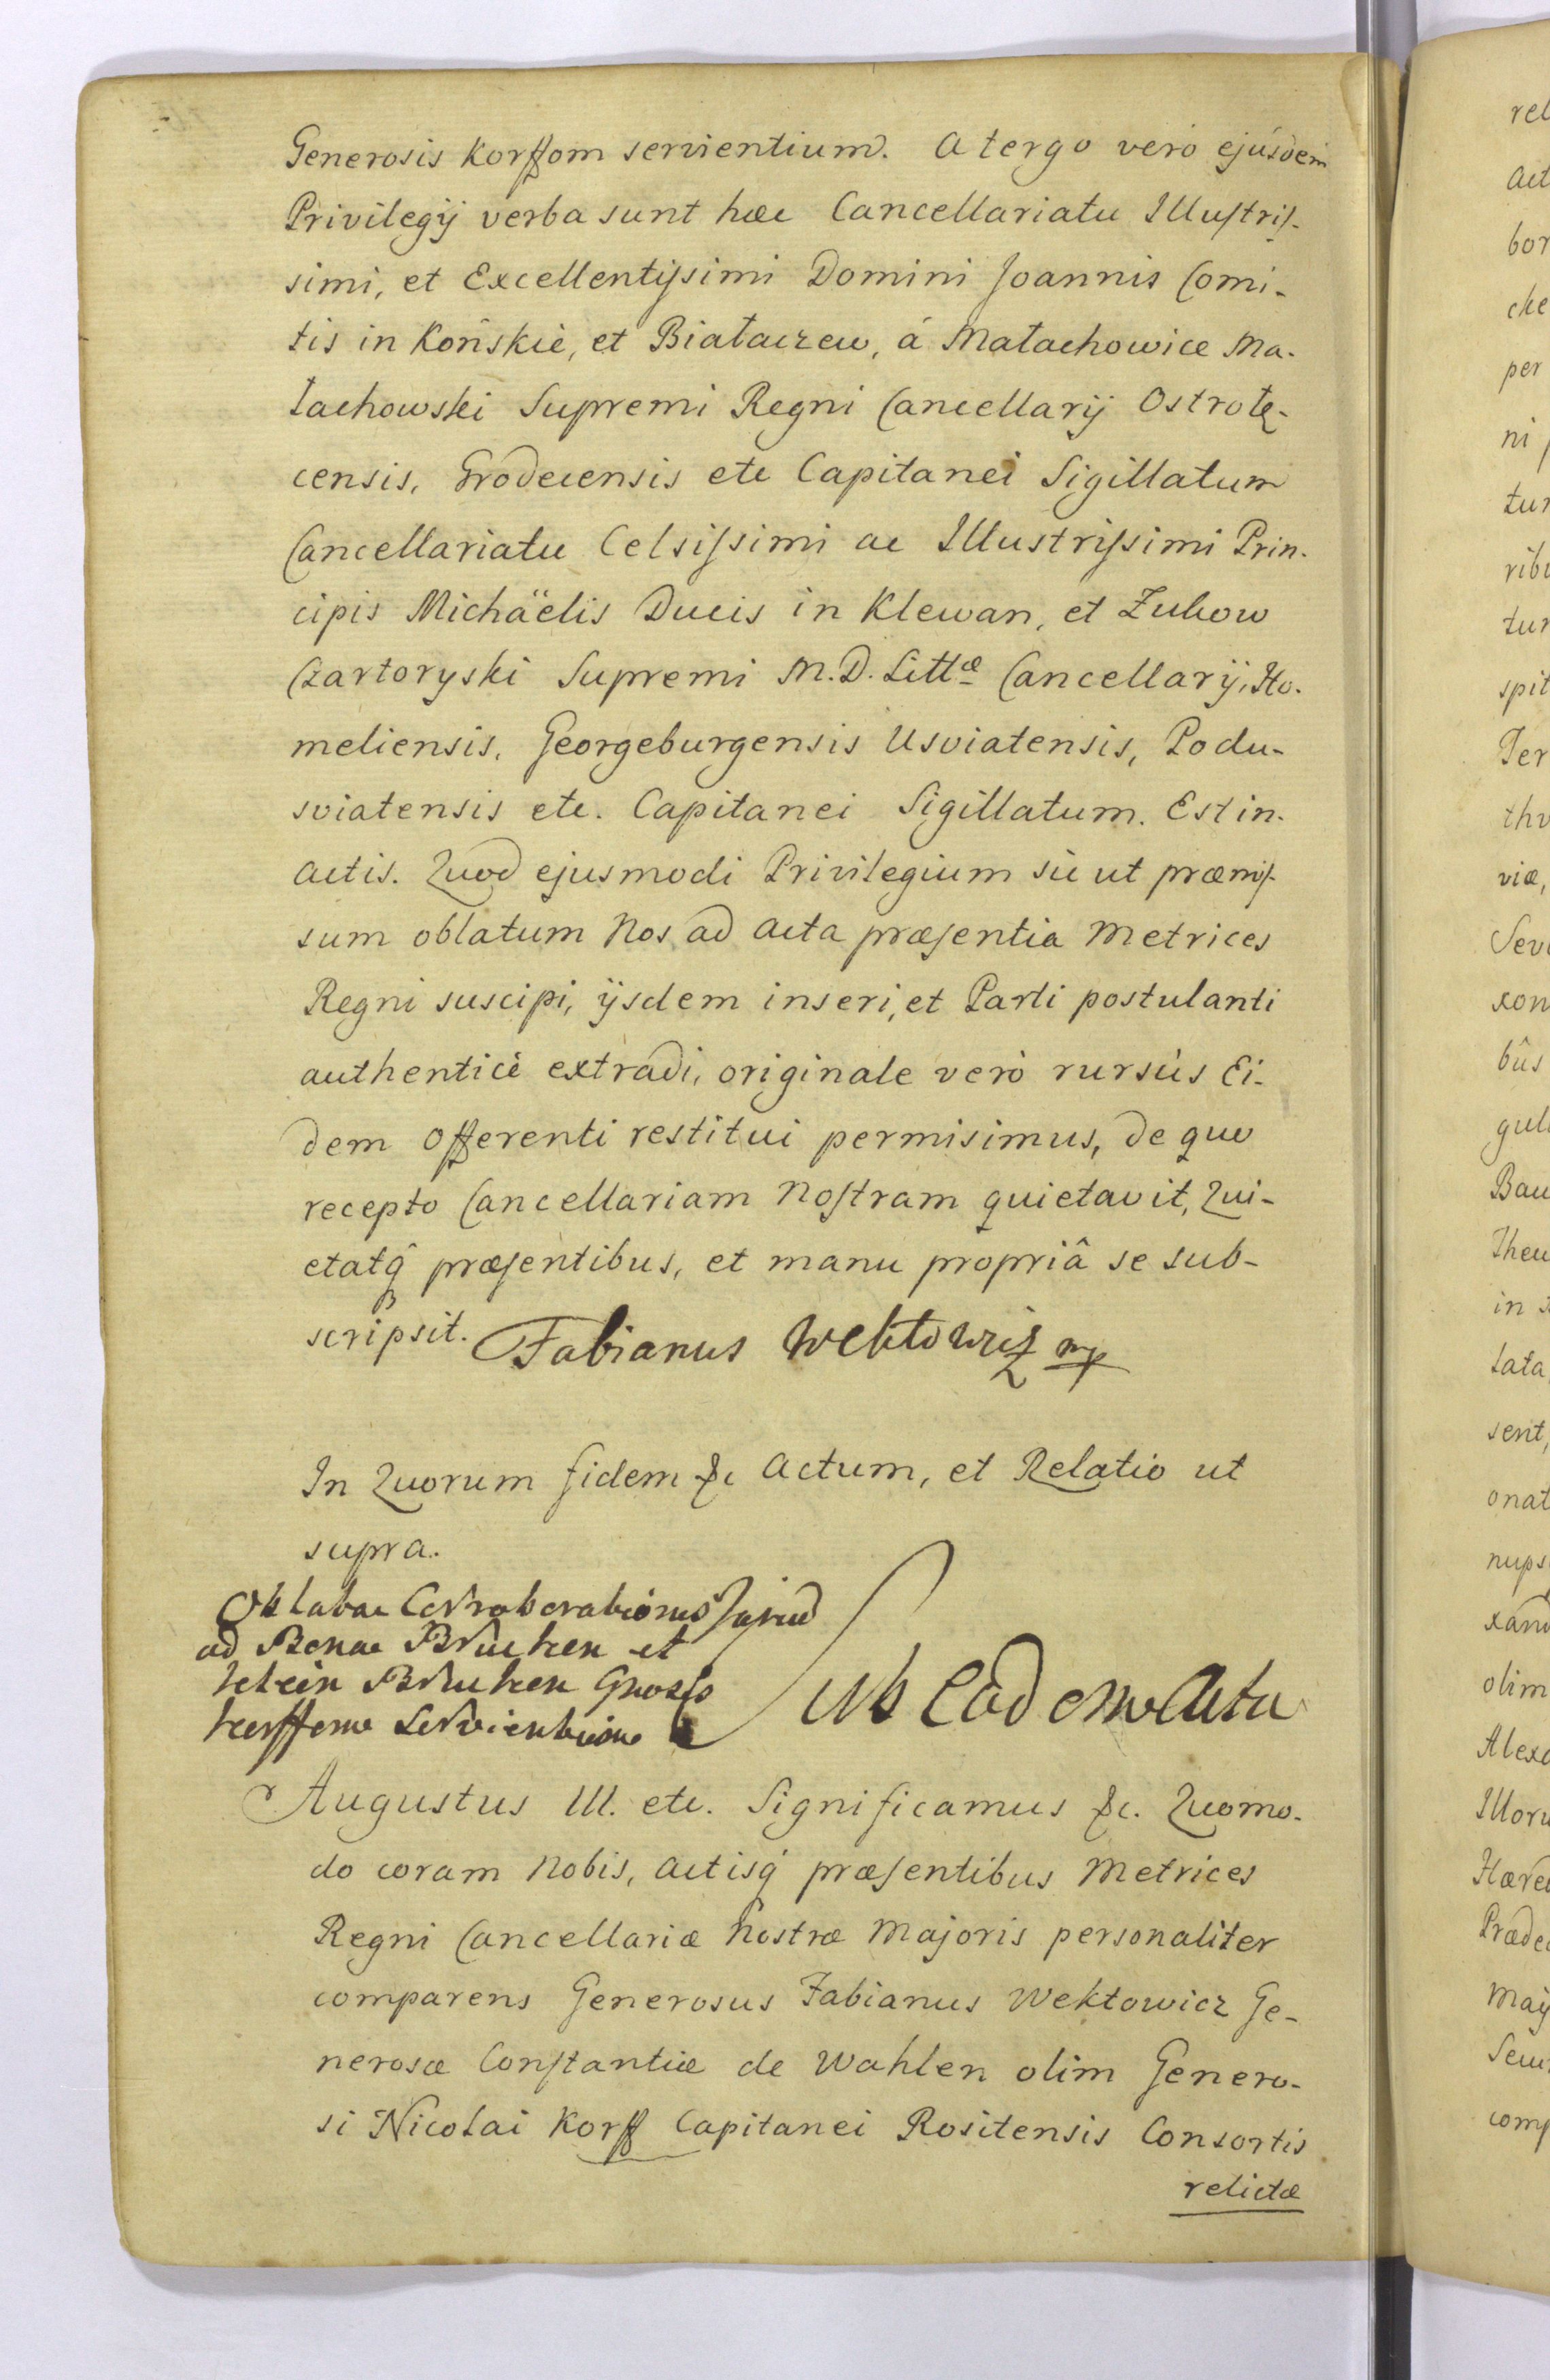 Generosis Korffom servientium. A tergo verò ejúsdem
Privilegÿ verba sunt hæc Cancellariatu Illustris-
simi, et Excellentissimi Domini Joannis Comi-
tis in Końskie, et Białaczew, á Małachowice Ma-
łachowski Supremi Regni Cancellarÿ Ostrołę-
censis, Grodecensis etc Capitanei Sigillatum
Cancellariatu Celsissimi ac Illustrissimi Prin-
cipis Michäelis Ducis in Klewan, et Zukow
Czartoryski Supremi M. D. Littæ Cancellarÿ, Ho-
meliensis, Georgeburgensis Usviatensis, Podu-
sviatensis etc. Capitanei Sigillatum. Est in-
actis. Quod ejusmodi Privilegium sic ut præmis-
sum oblatum Nos ad Acta præsentia Metrices
Regni suscipi, ÿsdem inseri, et Parti postulanti
authenticè extradi, originale verò rursùs Ei-
dem Offerenti restitui permisimus, de quo
recepto Cancellariam Nostram quietavit, Qui-
etatq̂ præsentibus, et manu propriâ se sub-
scripsit. Fabianus Wektowicz mp
In Quorum fidem &c Actum, et Relatio ut
supra.
Oblatae Corroborationis Jurium
ad Bona Brucken et
Klein Brucken Gnosis
Korffom Servientium
Sub Eodem Actu
Augustus III. etc. Significamus &c. Quomo-
do coram Nobis, Actisq́ præsentibus Metrices
Regni Cancellariæ Nostræ Majoris personaliter
comparens Generosus Fabianus Wektowicz Ge-
nerosæ Constantiæ de Wahlen olim Genero-
si Nicolai Korff Capitanei Rositensis Consortis
relictæ